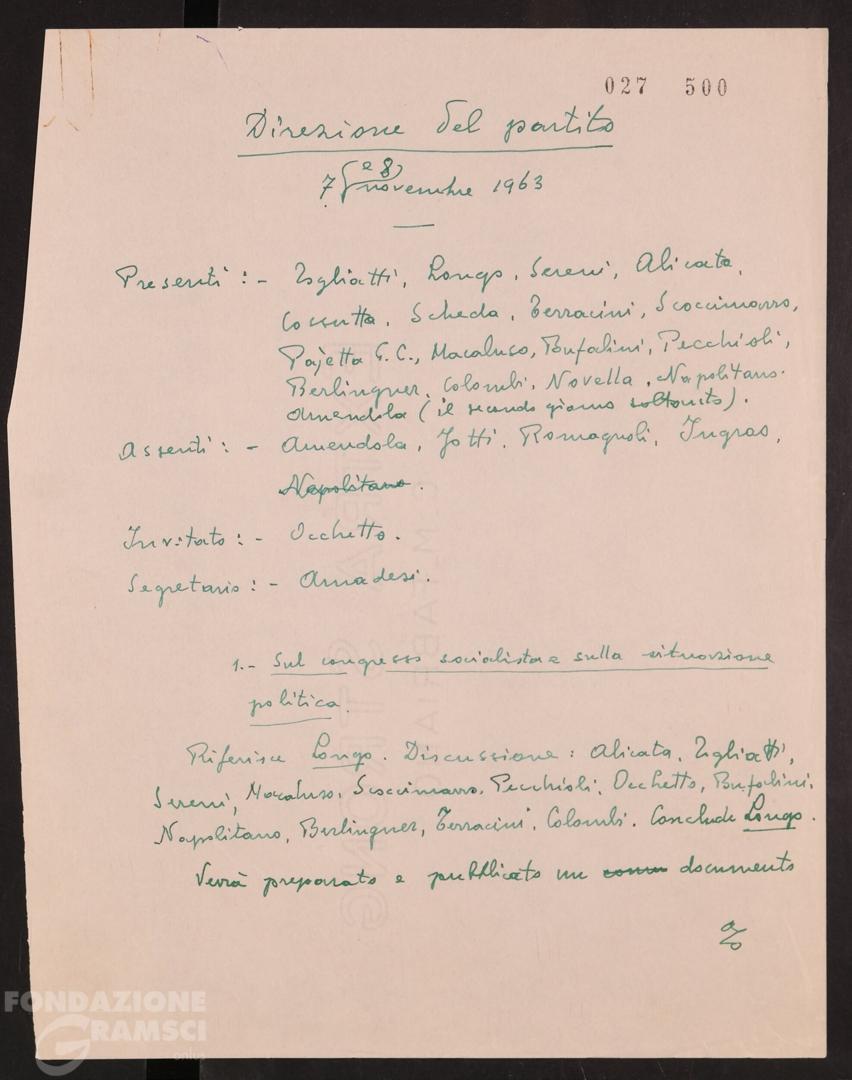 027 500
Direzione del partito
7 (e 8) novembre 1963
Presenti : - Togliatti, Longo, Sereni, Alicata,
Cossutta, Scheda, Terracini, Scoccimarro,
Pajetta G. C., Macaluso, Bufalini, Pecchioli,
Berlinguer, Colombi, Novella, Napolitano.
Amendola (il secondo giorno soltanto).
Assenti : - Amendola, Jotti, Romagnoli, Ingrao,
Napolitano.
Invitato : - Occhetto.
Segretario : - Amadesi.
1. - Sul congresso socialista e sulla situazione
politica.
Riferisce Longo. Discussione : Alicata, Togliatti,
Sereni, Macaluso, Scoccimarro, Pecchioli, Occhetto, Bufalini,
Napolitano, Berlinguer, Terracini, Colombi. Conclude Longo.
Verrà preparato e pubblicato un documento
FONDAZIONE
GRAMSCI
onlus